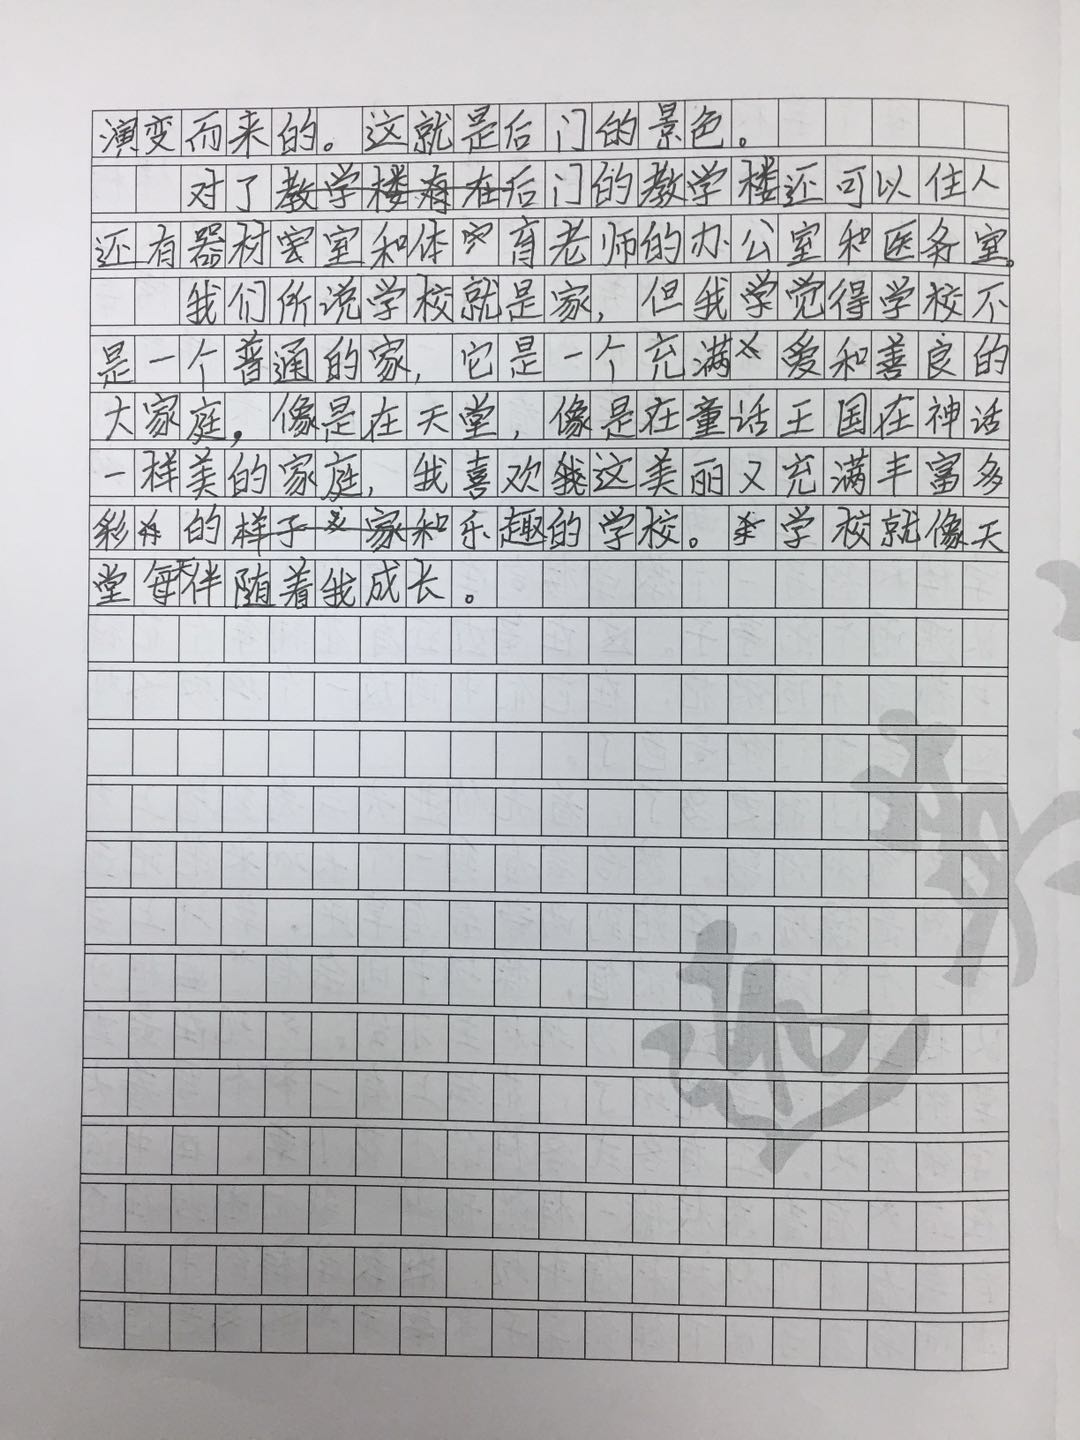 演变而来的。这就是后门的景色。
对了教学楼有在后门的教学楼还可以住人
还有器材室和体育老师的办公室和医务室。
我们所说学校就是家，但我学觉得学校不
是一个普通的家，它是一个充满爱和善良的
大家庭，像是在天堂，像是在童话王国在神话
一样美的家庭，我喜欢我这美丽又充满丰富多
彩的样子家和乐趣的学校。学校就像天
堂每天伴随着我成长。